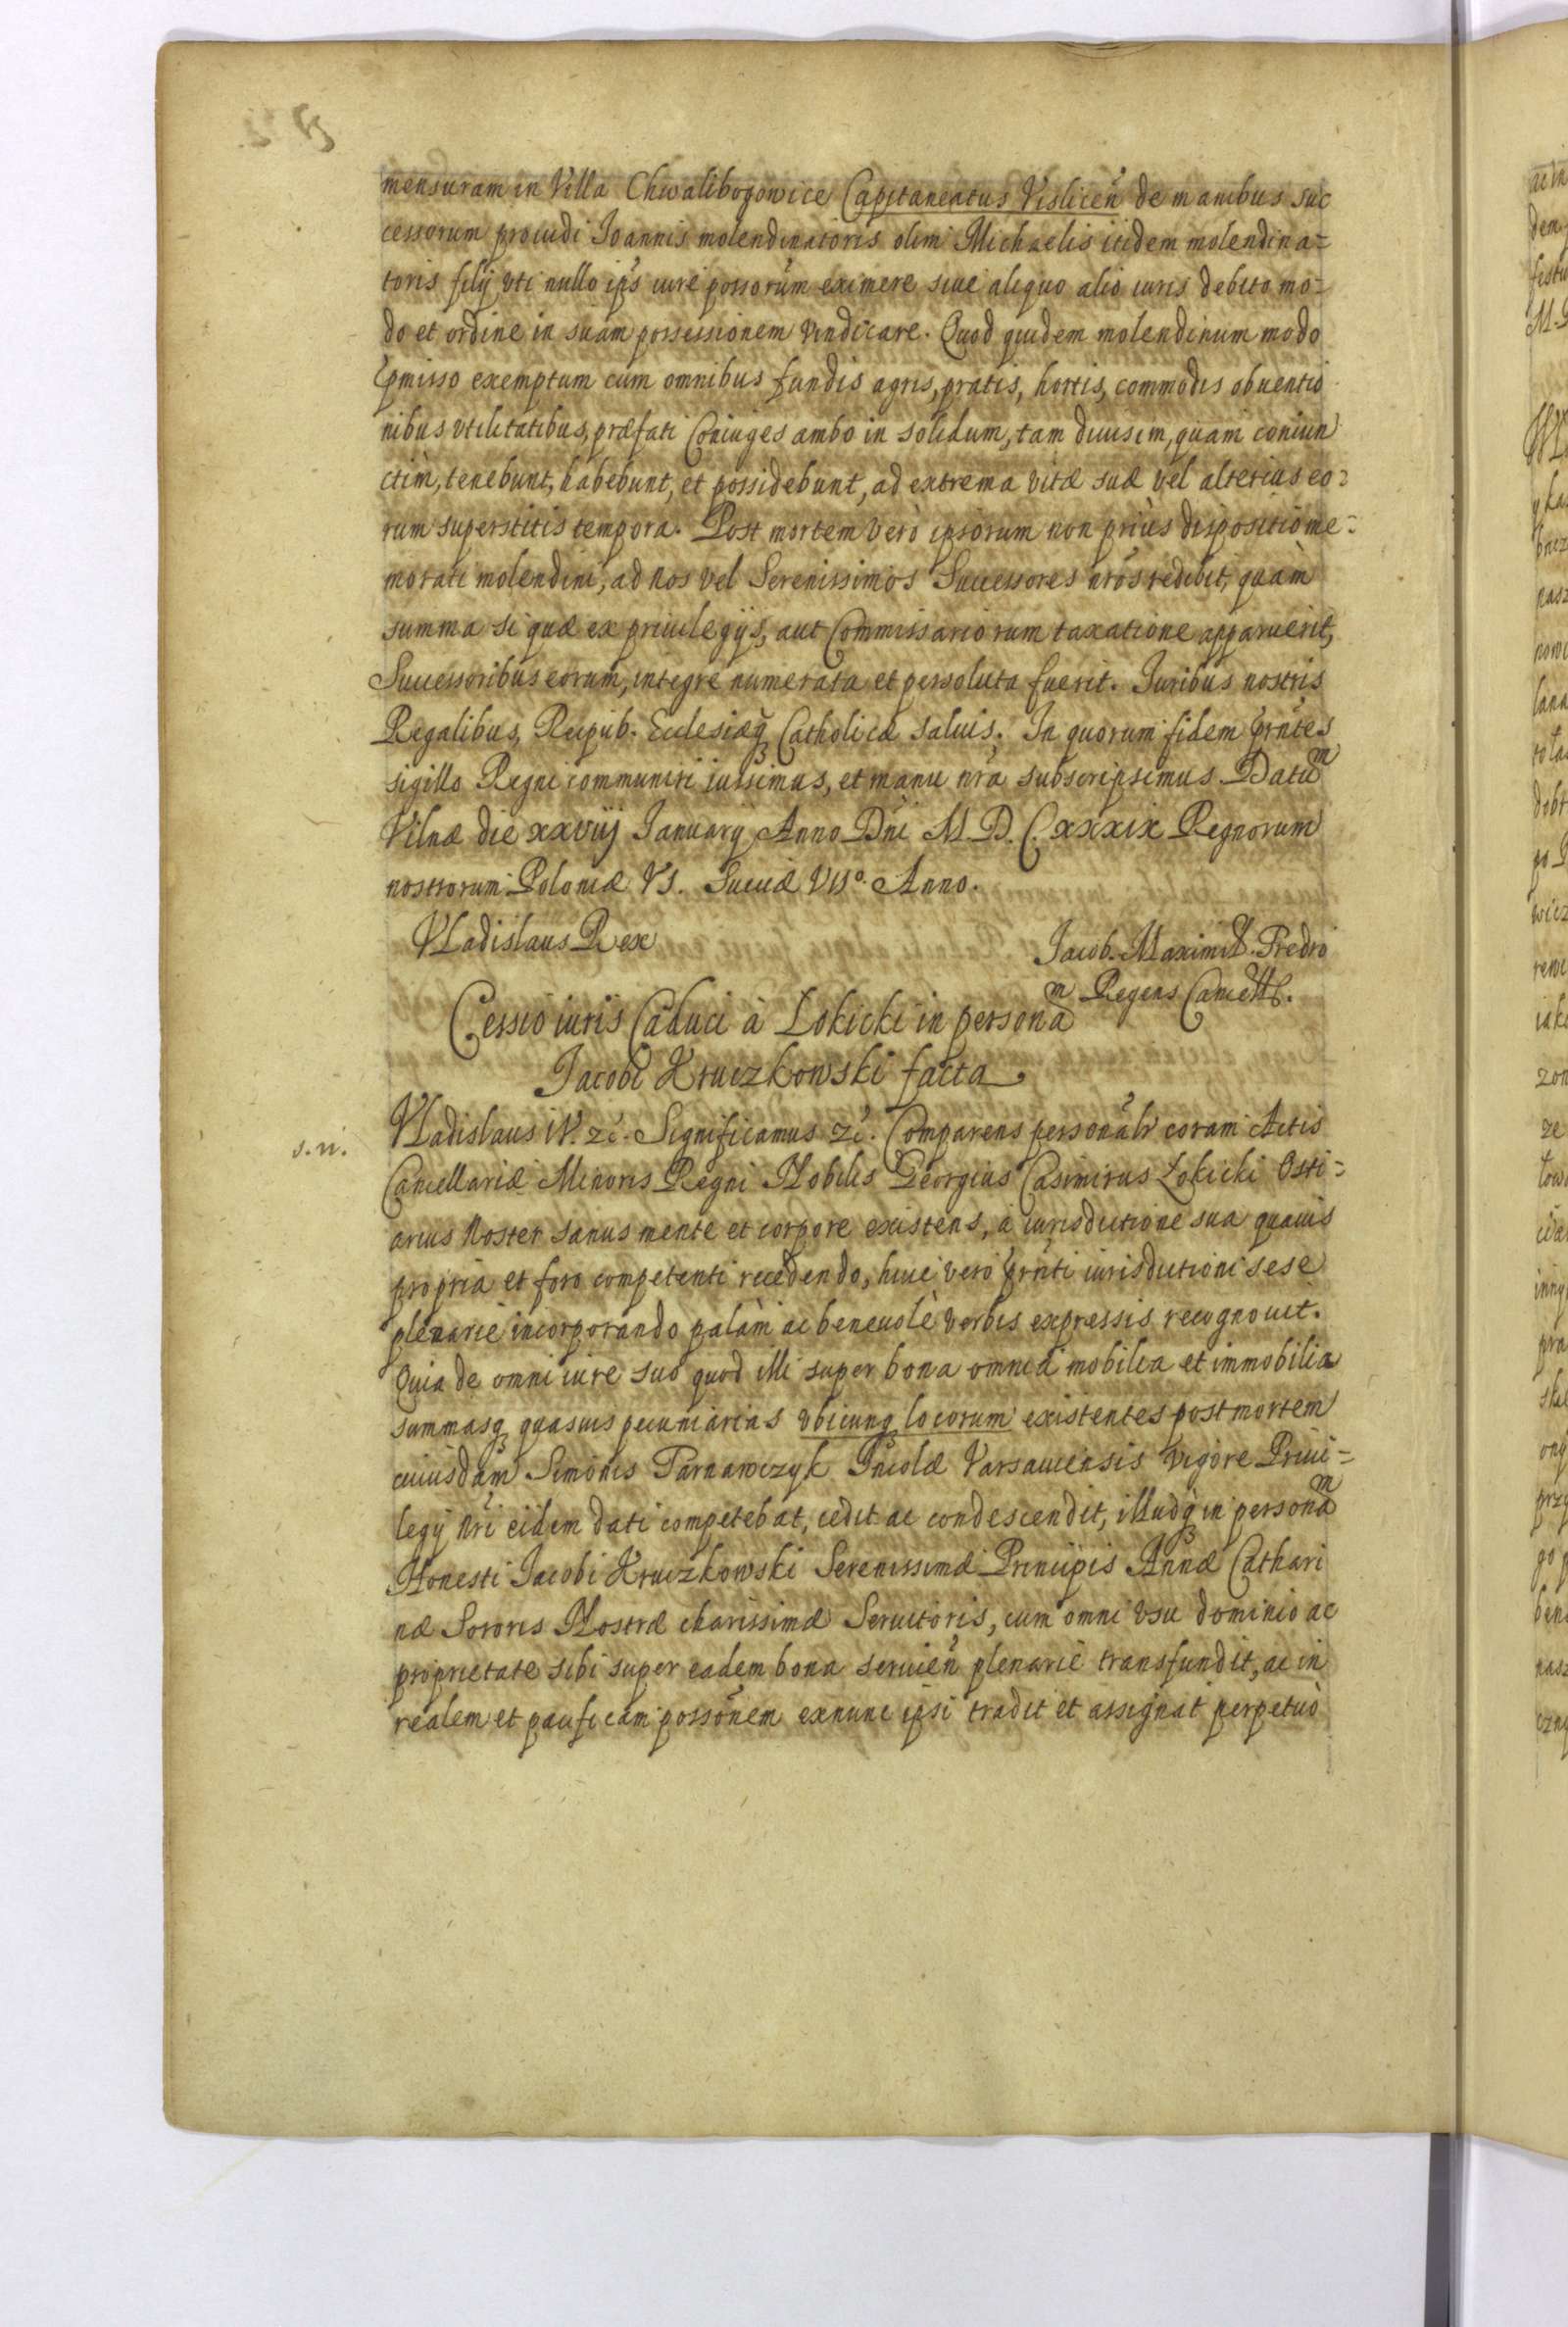 mensuram in Villa Chwalibogowice Capitaneatus Vislicen̄ de manibus suc
cessorum prouidi Joannis molendinatoris olim Michaelis itidem molendina=
toris filij vti nullo ip̄s iure possorūm eximere siue aliquo alio iuris debito mo=
do et ordine in suam possessionem vindicare. Quod quidem molendinum modo
p̄misso exemptum cum omnibus fundis agris, pratis, hortis, commodis obuentio
nibus vtilitatibus, præfati Coniuges ambo in solidum, tam diuisim, quam coniun
ctim, tenebunt, habebunt, et possidebunt, ad extrema vitæ suæ vel alterius eo=
rum superstitis tempora. Post mortem verò ipsorum non priùs dispositio me=
morati molendini, ad nos vel Serenissimos Successores nr̄os redibit, quàm
summa si quæ ex priuilegijs, aut Commissariorum taxatione apparuerit,
Successoribus eorum, integrè numerata et persoluta fuerit. Juribus nostris
Regalibus, Reipub. Ecclesiæq Catholicæ saluis. In quorum fidem pr̄ntes
sigillo Regni communiri iussimus, et manu nr̄a subscripsimus. Datum
Vilnæ die xxviij January Anno Dn̄i M. D. C. xxxix Regnorum
nostrorum Poloniæ VJ. Sueciæ VIJº. Anno.
Vladislaus Rex
Jacob. Maximil. Fredro
m Regens Cancell.
Cessio iuris Caduci à Lokicki in persona
Jacobi Kruczkowski facta.
s. n.
Vladislaus IV. zc̄. Significamus zc̄. Comparens personalr̄ coram Actis
Cancellariæ Minoris Regni Nobilis Georgius Casimirus Lokicki Osti=
arius Noster sanus mente et corpore existens, à iurisdictione sua quauis
propria et foro competenti recedendo, huic vero pr̄nti iurisdictioni sese
plenarie incorporando palàm ac beneuolè verbis expressis recognouit.
Quia de omni iure suo quod illi super bona omnia mobilia et immobilia
summasq quasuis pecuniarias vbicunq locorum existentes post mortem
cuiusdam Simonis Tarnawczyk Incolæ Varsauiensis vigore Priui=
legij nr̄i eidem dati competebat, cedit ac condescendit, illudq in personam
Honesti Jacobi Kruczkowski Serenissimæ Principis Annæ Cathari
næ Sororis Nostræ charissimæ Seruitoris, cum omni vsu dominio ac
proprietate sibi super eadem bona seruien̄ plenariè transfundit, ac in
realem et pacificam possōnem exnunc ipsi tradit et assignat perpetuò